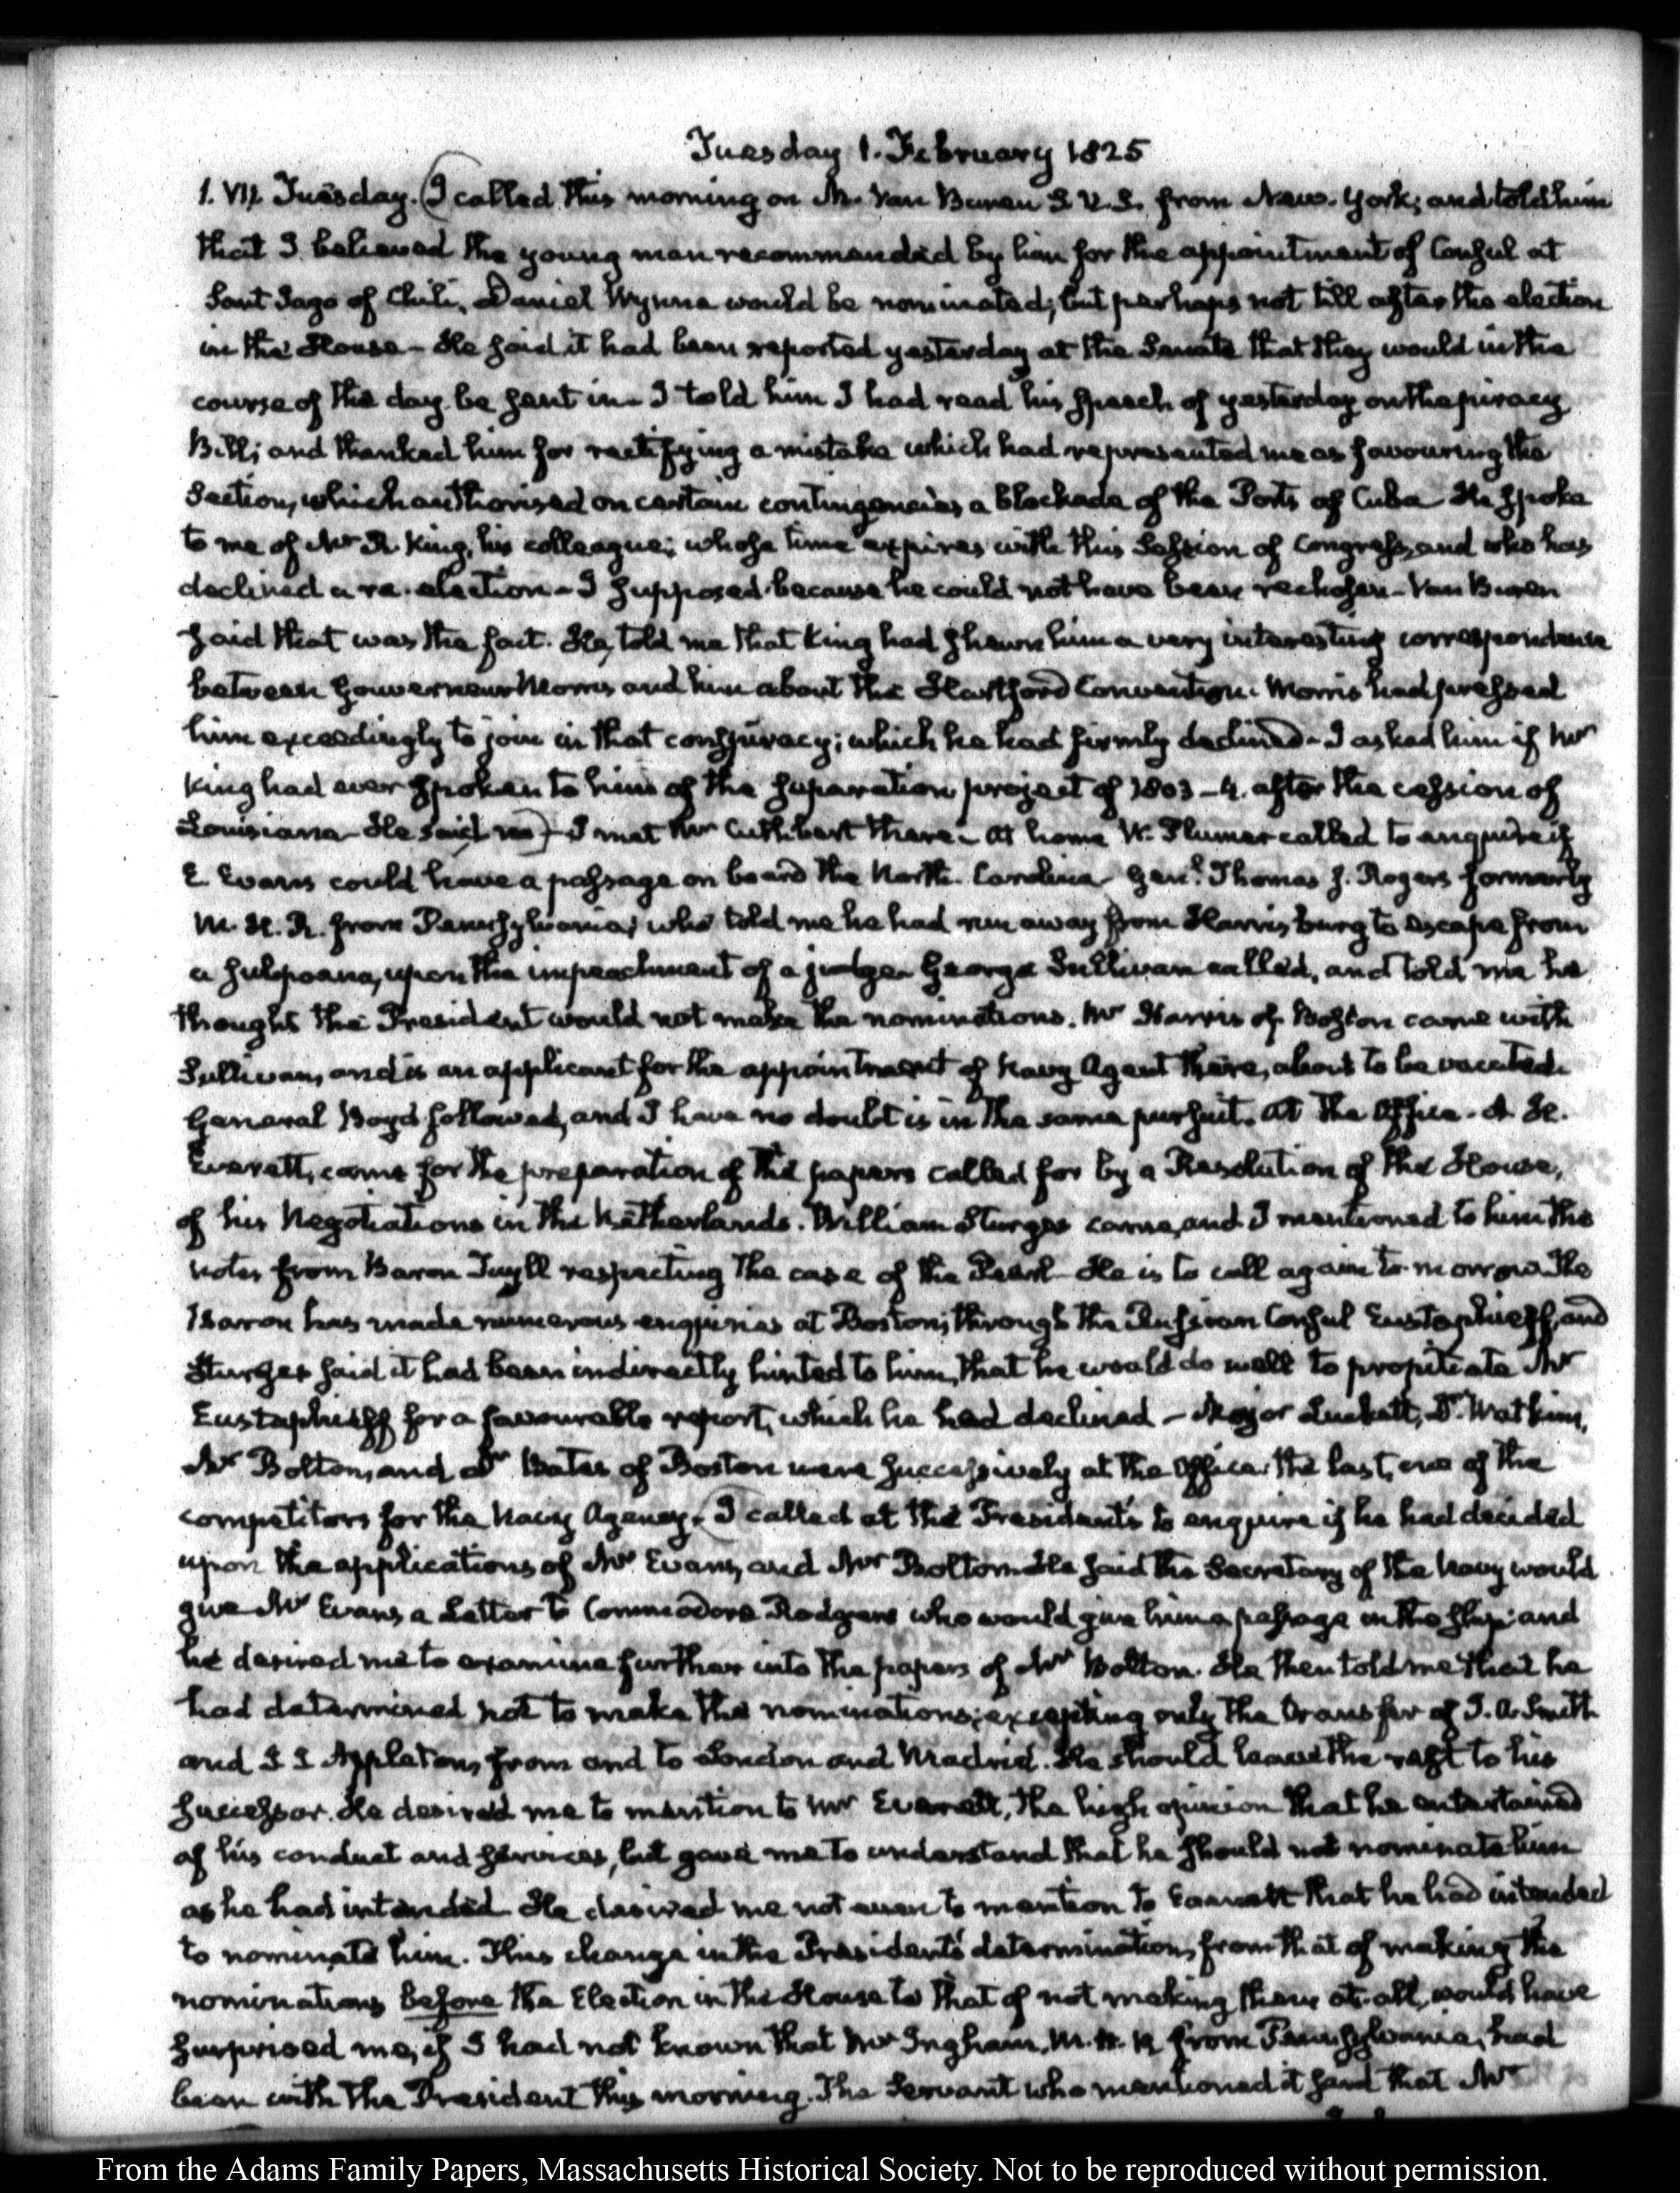 Tuesday 1. February 1825
1. VII. Tuesday. (I called this morning on Mr. Van Buren S. U. S. from New-York; and told him
that I believed the young man recommended by him for the appointment of Consul at
Sant Iago of Chili, Daniel Wynne would be nominated; but perhaps not till after the election
in the House – He said it had been reported yesterday at the Senate that they would in the
course of the day be sent in – I told him I had read his speech of yesterday on the piracy
Bill; and thanked him for rectifying a mistake which had represented me as favouring the
Section, which authorised on certain contingencies, a blockade of the Ports of Cuba – He spoke
to me of Mr R. King, his colleague; whose time expires with this Session of Congress, and who has
declined a re-election – I supposed because he could not have been rechosen – Van Buren
said that was the fact. He told me that King had shewn him a very interesting correspondence
between Gouverneur Morris and him about the Hartford Convention. Morris had pressed
him exceedingly to join in that conspiracy; which he had firmly declined – I asked him if Mr
King had ever spoken to him of the separation project of 1803–4. after the cession of
Louisiana – He said no) – I met Mr Cuthbert there – At home W. Plumer called to enquire if
E. Evans could have a passage on board the North-Carolina – Genl. Thomas J. Rogers formerly
M. H. R. from Pennsylvania, who told me he had run away from Harrisburg to escape from
a subpoena, upon the impeachment of a judge – George Sullivan called, and told me he
thought the President would not make the nominations. Mr Harris of Boston came with
Sullivan, and is an applicant for the appointment of Navy Agent there, about to be vacated.
General Boyd followed, and I have no doubt is in the same pursuit. At the Office. A. H.
Everett, came for the preparation of the papers called for by a Resolution of the House,
of his Negotiations in the Netherlands. William Sturges came, and I mentioned to him the
notes from Baron Tuyll respecting the case of the Pearl – He is to call again to-morrow. The
Baron has made numerous enquiries at Boston, through the Russian Consul Eustaphieff, and
Sturges said it had been indirectly hinted to him, that he would do well to propitiate Mr
Eustaphieff for a favourable report, which he had declined – Major Luckett, Dr. Watkins,
Mr Bolton, and Mr Bates of Boston were successively at the Office. the last, one of the
competitors for the Navy Agency. (I called at the President's to enquire if he had decided
upon the applications of Mr Evans, and Mr Bolton. He said the Secretary of the Navy would
give Mr Evans a Letter to Commodore Rodgers who would give him a passage in the ship: and
he desired me to examine further into the papers of Mr Bolton. He then told me that he
had determined not to make the nominations; excepting only the transfer of J. A. Smith
and J J Appleton, from and to London and Madrid. He should leave the rest to his
successor. He desired me to mention to Mr Everett, the high opinion that he entertained
of his conduct and services, but gave me to understand that he should not nominate him
as he had intended. He desired me not even to mention to Everett that he had intended
to nominate him. This change in the President's determination, from that of making the
nominations before the Election in the House to that of not making them at all, would have
surprised me, if I had not known that Mr Ingham, M. H. R. from Pennsylvania, had
been with the President this morning. The Servant who mentioned it said that Mr
From the Adams Family Papers, Massachusetts Historical Society. Not to be reproduced without permission.